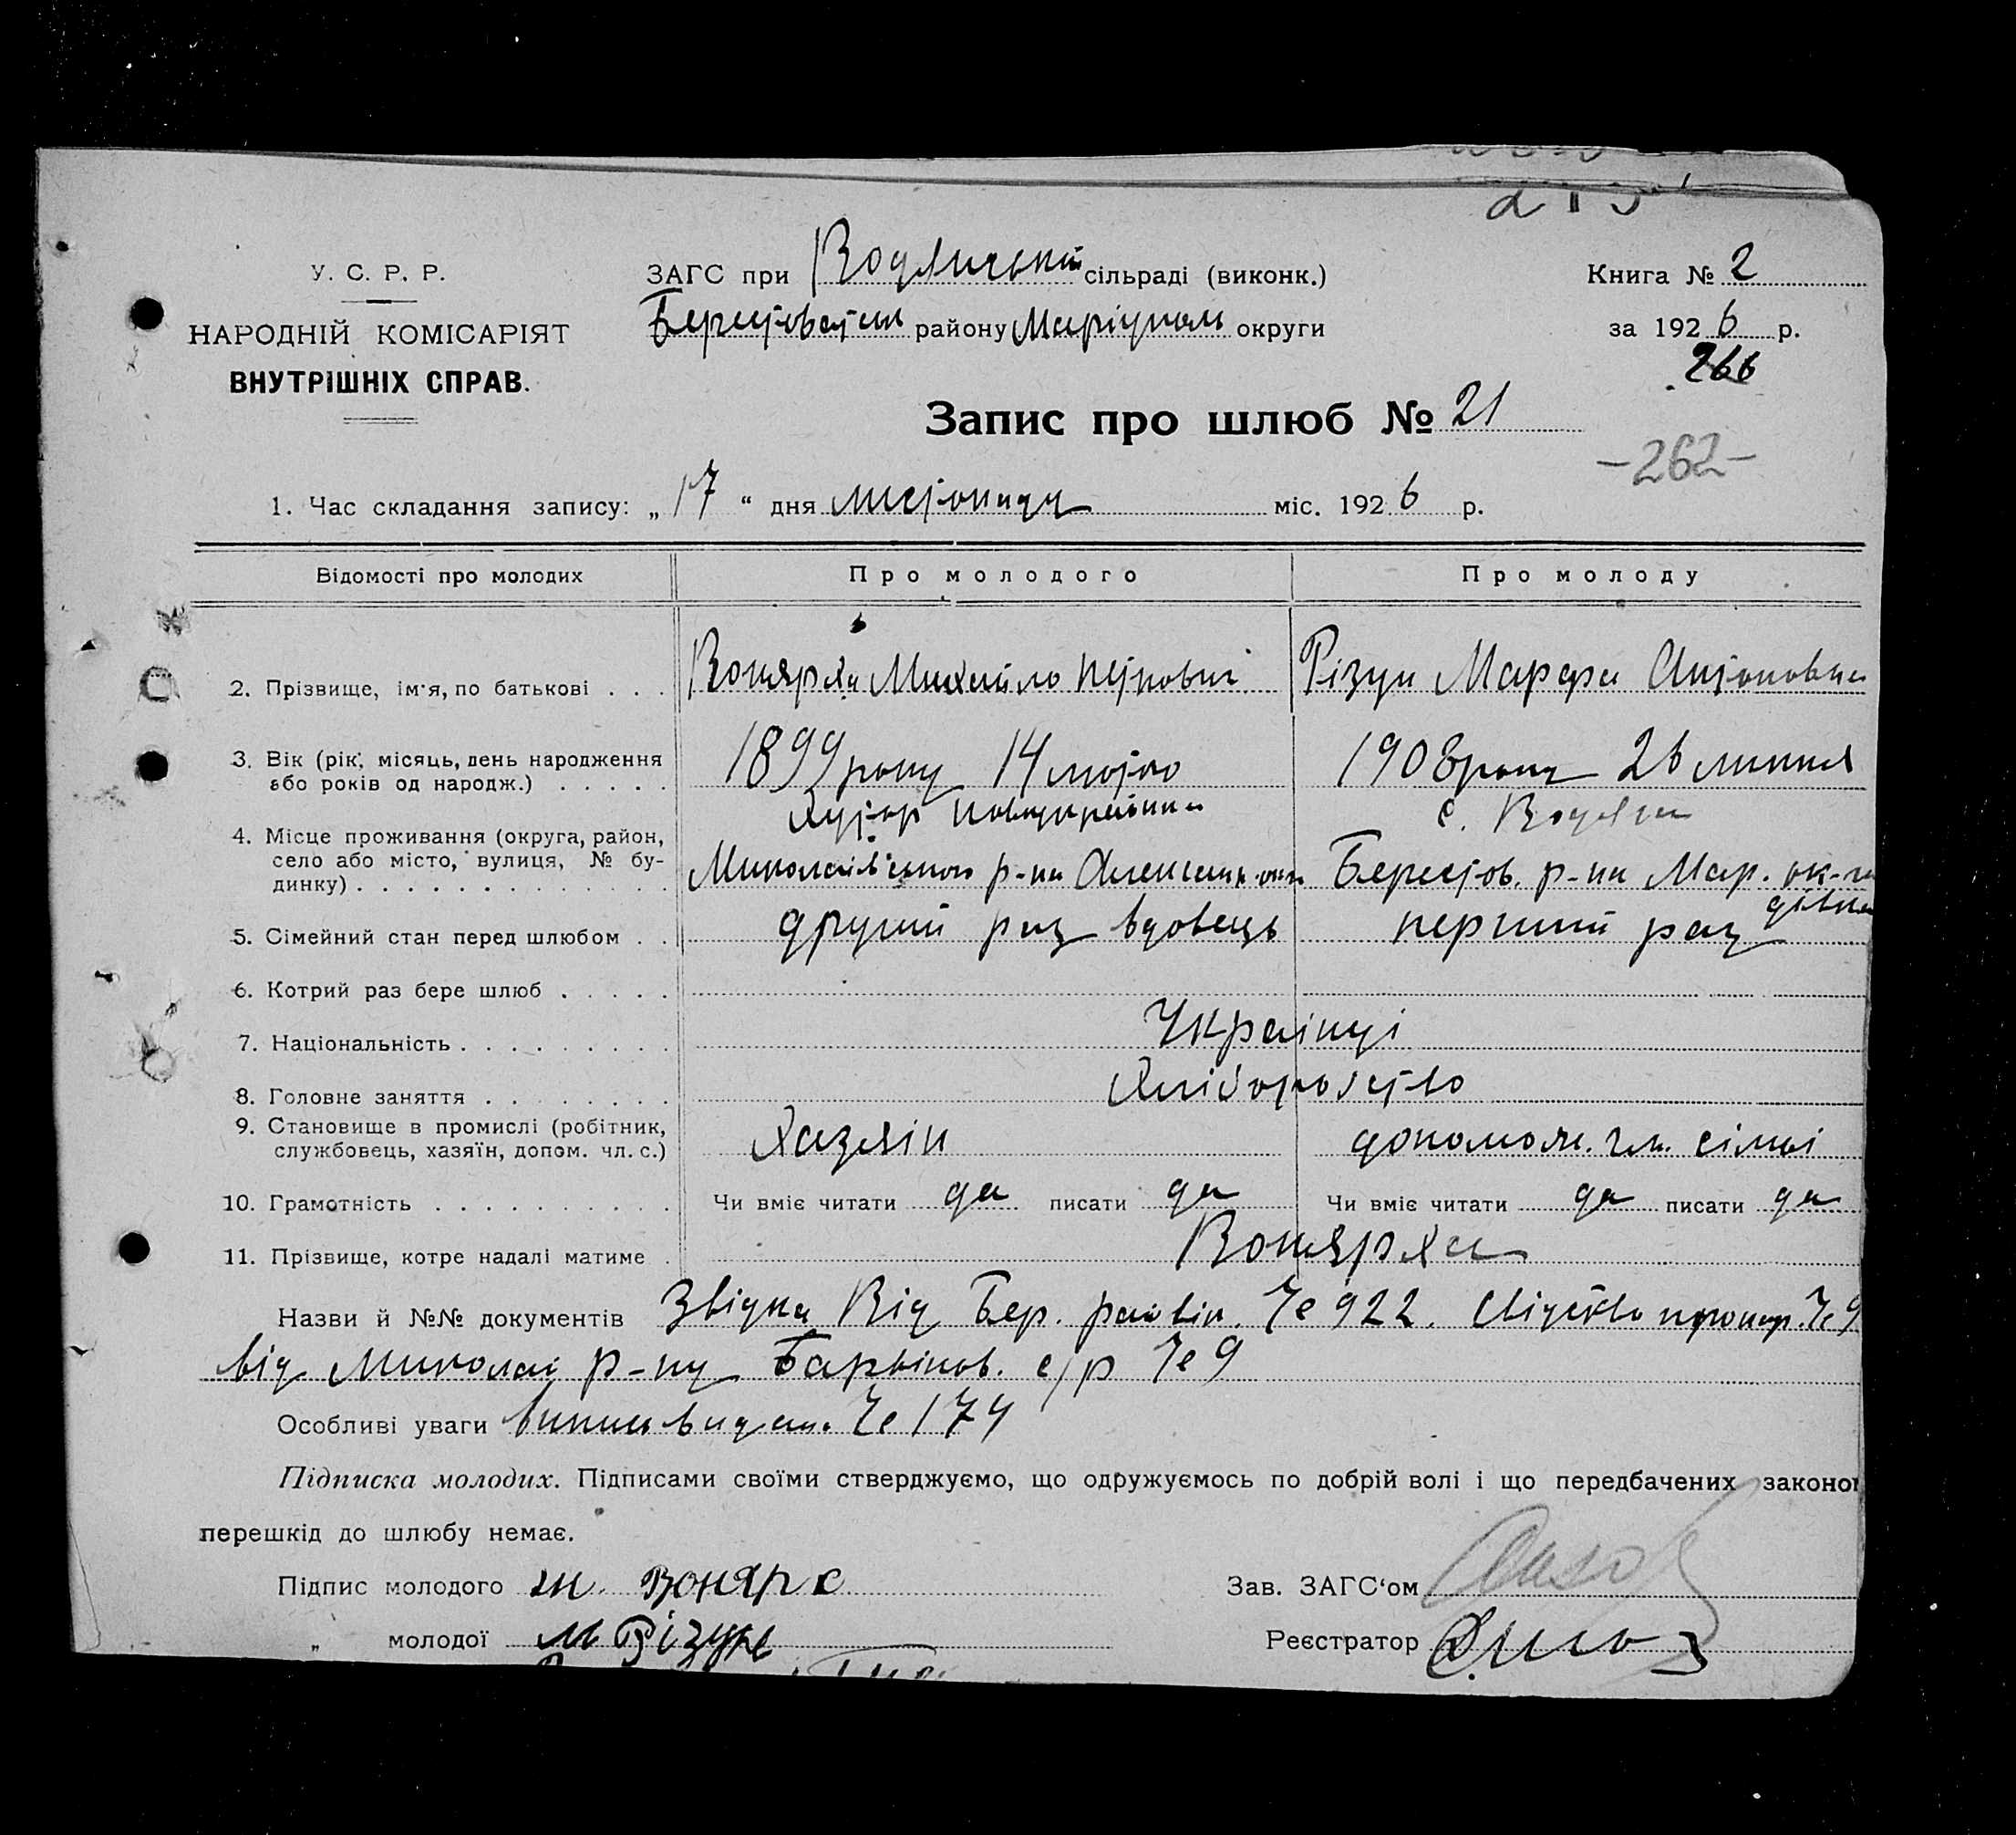 У. С. Р. Р.
НАРОДНІЙ КОМІСАРІЯТ
ВНУТРІШНІХ СПРАВ.
ЗАГС при сільраді (виконк.)
району Маріупол округи
Книга № 2
за 1926 р.
266
Запис про шлюб № 21
-262-
1. Час складання запису: „17“ дня листопаду міс. 1926 р.
Відомості про молодих Про молодого Про молоду
2. Прізвище, ім'я, по батькові . . . Вонярха Михайло Петрович Різун Марфа Антоновна
3. Вік (рік, місяць, день народження 1899 року 14 лютого 1908 року 26 липня
або років од народж.) . . . . .
хутор с. Водяна
4. Місце проживання (округа, район,
село або місто, вулиця, № бу- Миколаївського р-на Берестов. р-на Мар. ок-ги
динку) . . . . . . . . . . . . .
5. Сімейний стан перед шлюбом . . другий раз вдовець перший раз дівка
6. Котрий раз бере шлюб . . . . .
7. Національність . . . . . . . . . Українці
8. Головне заняття . . . . . . . . Хліборобство
9. Становище в промислі (робітник,
службовець, хазяїн, допом. чл. с.) Хазяін допомож. чл. сімьі
10. Грамотність . . . . . . . . . . Чи вміє читати да писати да Чи вміє читати да писати да
11. Прізвище, котре надалі матиме . Вонярха
Назви й №№ документів Звідка Від Бер. № 922. № 9
від Миколаї р-ну с/р № 9
Особливі уваги випись видана № 174
Підписка молодих. Підписами своїми стверджуємо, що одружуємось по добрій волі і що передбачених законо
перешкід до шлюбу немає.
Підпис молодого Воняр Зав. ЗАГС'ом
„ молодої М Різунь Реєстратор